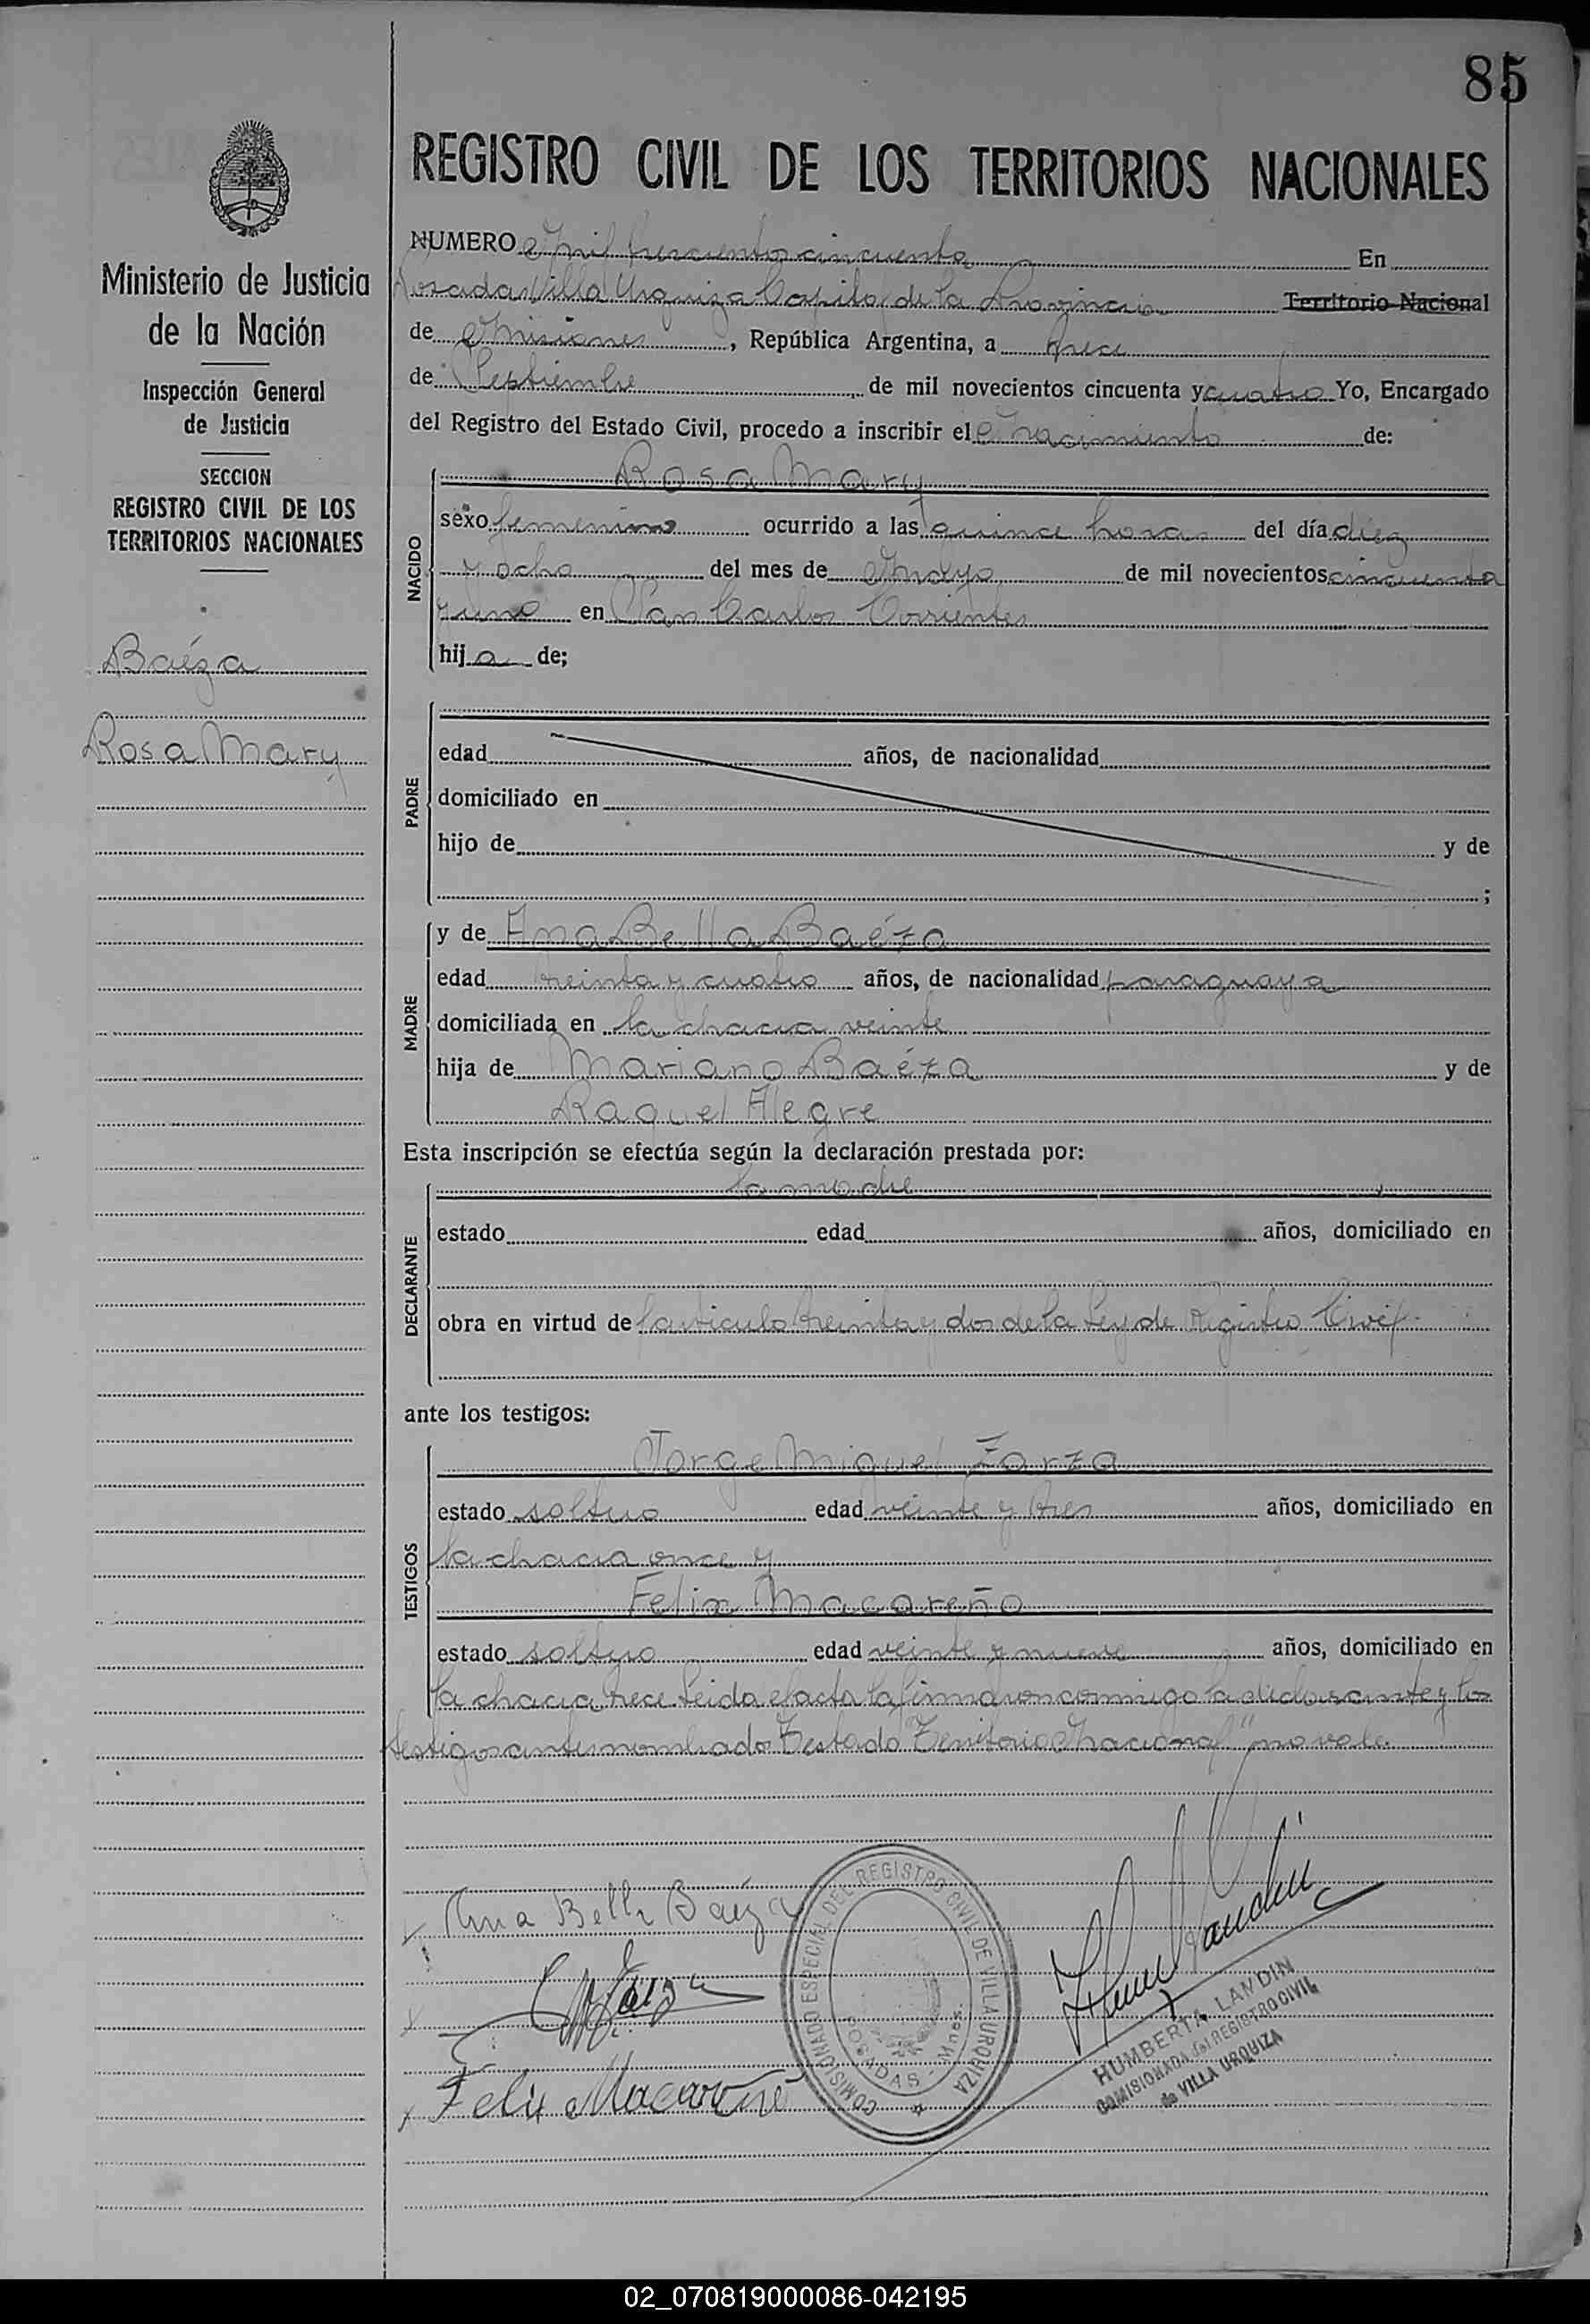 85
REGISTRO CIVIL DE LOS TERRITORIOS NACIONALES
Ministerio de Justicia
de la Nación
Inspección General
de Justicia
SECCION
REGISTRO CIVIL DE LOS
TERRITORIOS NACIONALES
Baéza
Rosa Mary
NUMERO Mil trescientos cincuenta En
Posadas Villa Urquiza Capital de la Provincia Territorio Nacional
de Misiones, República Argentina, a trece
de Septiembre de mil novecientos cincuenta y cuatro Yo, Encargado
del Registro del Estado Civil, procedo a inscribir el Nacimiento de:
NACIDO
Rosa Mary
sexo femenino ocurrido a las quince horas del día diez
y ocho del mes de Mayo de mil novecientos cincuenta
y uno en San Carlos Corrientes
hija de;
PADRE
edad años, de nacionalidad
domiciliado en
hijo de y de
;
MADRE
y de Ana Bella Baéza
edad treinta y cuatro años, de nacionalidad paraguaya
domiciliada en la chacra veinte
hija de Mariano Baéza y de
Raquel Alegre
Esta inscripción se efectúa según la declaración prestada por:
DECLARANTE
la madre
estado edad años, domiciliado en
obra en virtud de articulo treinta y dos de la Ley de Registro Civil
ante los testigos:
TESTIGOS
Jorge Miguel Zarza
estado soltero edad veinte y tres años, domiciliado en
la chacra once y
Felix Macareño
estado soltero edad veinte y nueve años, domiciliado en
la chacra trece. Leida el acta la firmaron conmigo la declarante y los
testigos antes nombrados Testado "Territorio Nacional" no vale
Ana Bella Baéza
Felix Macareñ
COMISIONADO ESPECIAL DEL REGISTRO CIVIL DE VILLA URQUIZA
POSADAS - Mnes.
HUMBERTA LANDIN
COMISIONADA del REGISTRO CIVIL
de VILLA URQUIZA
02_070819000086-042195